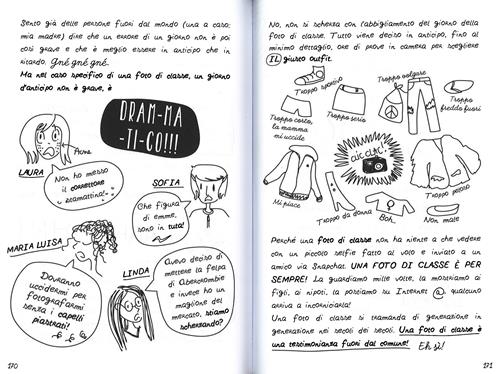 Sento già delle persone fuori dal mondo (una a caso:
mia madre) dire che un errore di un giorno non è poi
così grave e che è meglio essere in anticipo che in
ritardo. Gné gné gné.
Ma nel caso specifico di una foto di classe, un giorno
d'anticipo non è grave, è
DRAM-MA
-TI-CO!!!
Acne
LAURA
Non ho messo
il correttore
stamattina!
SOFIA
Che figura
di emme,
sono in tuta!
MARIA LUISA
Dovranno
uccidermi per
fotografarmi
senza i capelli
piastrati!
LINDA
Avevo deciso di
mettere la felpa
di Abercrombie
e invece ho un
maglione del
mercato, stiamo
scherzando?
170
No, non si scherza con l'abbigliamento del giorno della
foto di classe. Tutto viene deciso in anticipo, fino al
minimo dettaglio, ore di prove in camera per scegliere
IL giusto outfit.
Troppo sportivo
Troppo volgare
Troppo corto,
la mamma
mi uccide
Troppo serio
Troppo
freddo fuori
CIC CIAC!
Mi piace
Troppo da donna
Boh...
Non male
Troppo peloso
Perché una foto di classe non ha niente a che vedere
con un piccolo selfie fatto al volo e inviato a un
amico via Snapchat. UNA FOTO DI CLASSE È PER
SEMPRE! La guardiamo mille volte, la mostriamo ai
figli, ai nipoti, la postiamo su Internet @, qualcuno
arriva a incorniciarla!
Una foto di classe si tramanda di generazione in
generazione nei secoli dei secoli. Una foto di classe è
una testimonianza fuori dal comune! Eh sì!
171